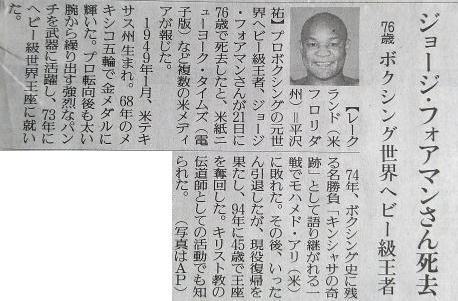 ジョージ・フォアマンさん死去
76歳 ボクシング世界ヘビー級王者
【レーク
ランド（米
フロリダ
州）＝平沢
祐】プロボクシングの元世
界ヘビー級王者、ジョージ
・フォアマンさんが21日に
76歳で死去したと、米紙ニ
ューヨーク・タイムズ（電
子版）など複数の米メディ
アが報じた。
1949年1月、米テキ
サス州生まれ。68年のメ
キシコ五輪で金メダルに
輝いた。プロ転向後も太い
腕から繰り出す強烈なパン
チを武器に活躍し、73年に
ヘビー級世界王座に就い
た。
74年、ボクシング史に残
る名勝負「キンシャサの奇
跡」として語り継がれる一
戦でモハメド・アリ（米）
に敗れた。その後、いった
ん引退したが、現役復帰を
果たし、94年に45歳で王座
を奪回した。キリスト教の
伝道師としての活動でも知
られた。（写真はAP）